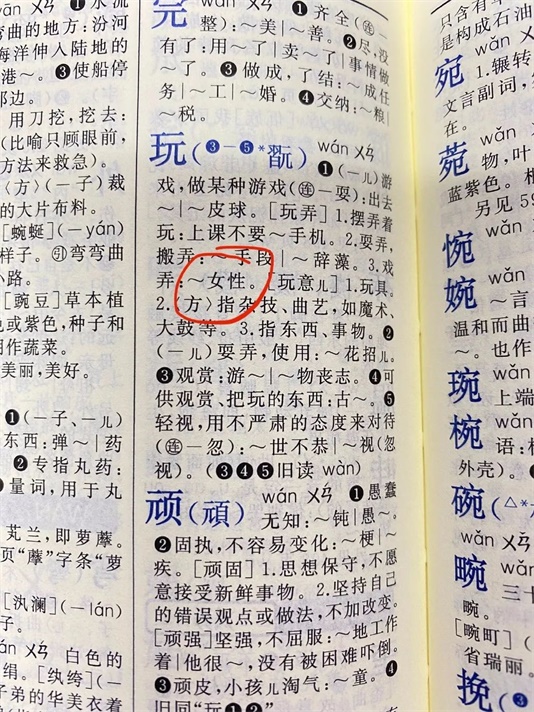 ❶水流
弯曲的地方:汾河
海洋伸入陆地的
港～。❸使船停
那边。
用刀挖,挖去:
(比喻只顾眼前,
方法来救急)。
〈方〉(一子)裁
的大片布料。
[蜿蜒](－yán)
样子。㊁弯弯曲
小路。
[豌豆]草本植
色或紫色,种子和
用作蔬菜。
美丽,美好。
❶(一子、一儿)
东西:弹～|药
❷专指丸药:
量词,用于丸
芄兰,即萝藦。
页“藦”字条“萝
[汍澜](－lán)
子。
wán ㄨㄢˊ 白色的
绢。[纨绔](－
子弟的华美衣着
完
❶齐全(㊣一
整):～美|～善。❷尽,没
有了:用～了|卖～了|事情做
～了。❸做成,了结:～成任
务|～工|～婚。❹交纳:～粮|
～税。
玩(❸－❺*翫) wán ㄨㄢˊ
❶(一儿)游
戏,做某种游戏(㊣一耍):出去
～|～皮球。[玩弄]1.摆弄着
玩:上课不要～手机。2.耍弄,
搬弄:～手段|～辞藻。3.戏
弄:～女性。[玩意儿]1.玩具。
2.〈方〉指杂技、曲艺,如魔术、
大鼓等。3.指东西、事物。❷
(一儿)耍弄,使用:～花招儿。
❸观赏:游～|～物丧志。❹可
供观赏、把玩的东西:古～。❺
轻视,用不严肃的态度来对待
(㊣一忽):～世不恭|～视(忽
视)。(❸❹❺旧读 wàn)
顽(頑) wán ㄨㄢˊ ❶愚蠢
无知:～钝|愚～。
❷固执,不容易变化:～梗|～
疾。[顽固]1.思想保守,不愿
意接受新鲜事物。2.坚持自己
的错误观点或做法,不加改变。
[顽强]坚强,不屈服:～地工作
着|他很～,没有被困难吓倒。
❸顽皮,小孩儿淘气:～童。❹
旧同“玩❶❷”
只含有单
是构成石油
宛 wǎn ㄨㄢˇ
1.辗转
文言副词,
在。
菀 wǎn ㄨㄢˇ
物,叶
蓝紫色。根
另见 59
惋 wǎn
婉 wǎn
～言
温和而曲
～。也作
琬 wǎn
上端
椀 wǎn
语:
外壳)。
碗(△*
wǎn ㄨㄢˇ
畹 wǎn
三十
畹。
[畹町]（
省瑞丽。
挽(❸